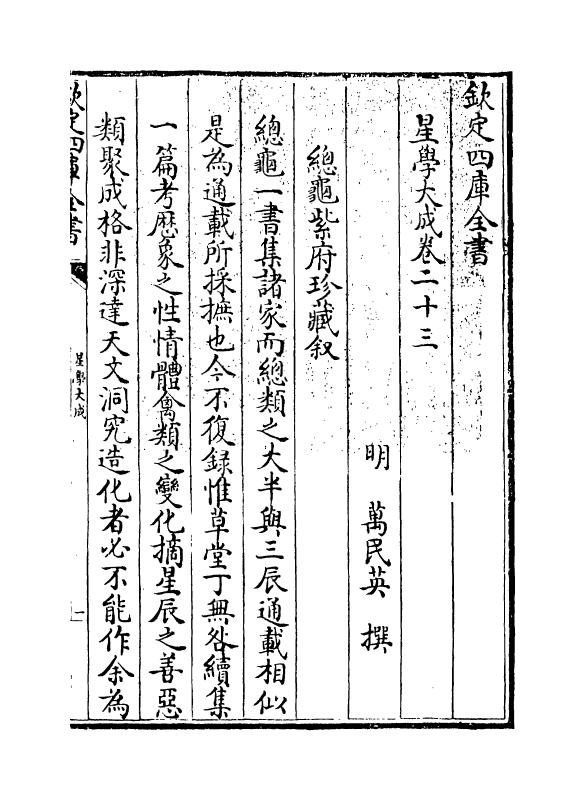 欽定四庫全書
星學大成卷二十三
明 萬民英 撰
總龜紫府珍藏叙
總龜一書集諸家而總類之大半與三辰通載相似
是為通載所採摭也今不復録惟草堂丁無咎續集
一篇考歴象之性情體禽類之變化摘星辰之善惡
類聚成格非深達天文洞究造化者必不能作余為
欽定四庫全書
星學大成
一